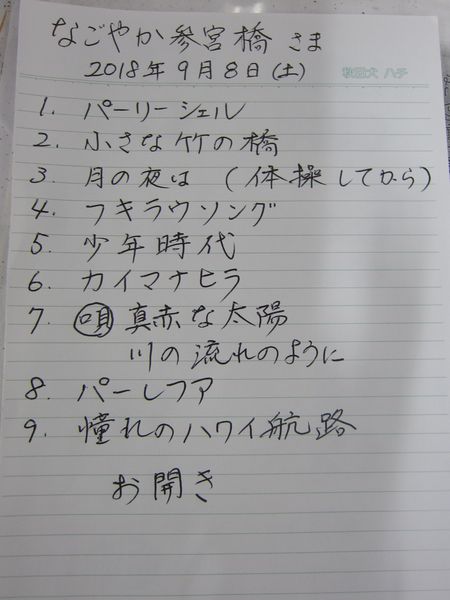 なごやか参宮橋 さま
2018年9月8日(土)
秋田犬 ハチ
1. パーリーシェル
2. 小さな竹の橋
3. 月の夜は (体操してから)
4. フキラウソング
5. 少年時代
6. カイマナヒラ
7. 唄 真赤な太陽
川の流れのように
8. パーレフア
9. 憧れのハワイ航路
お開き